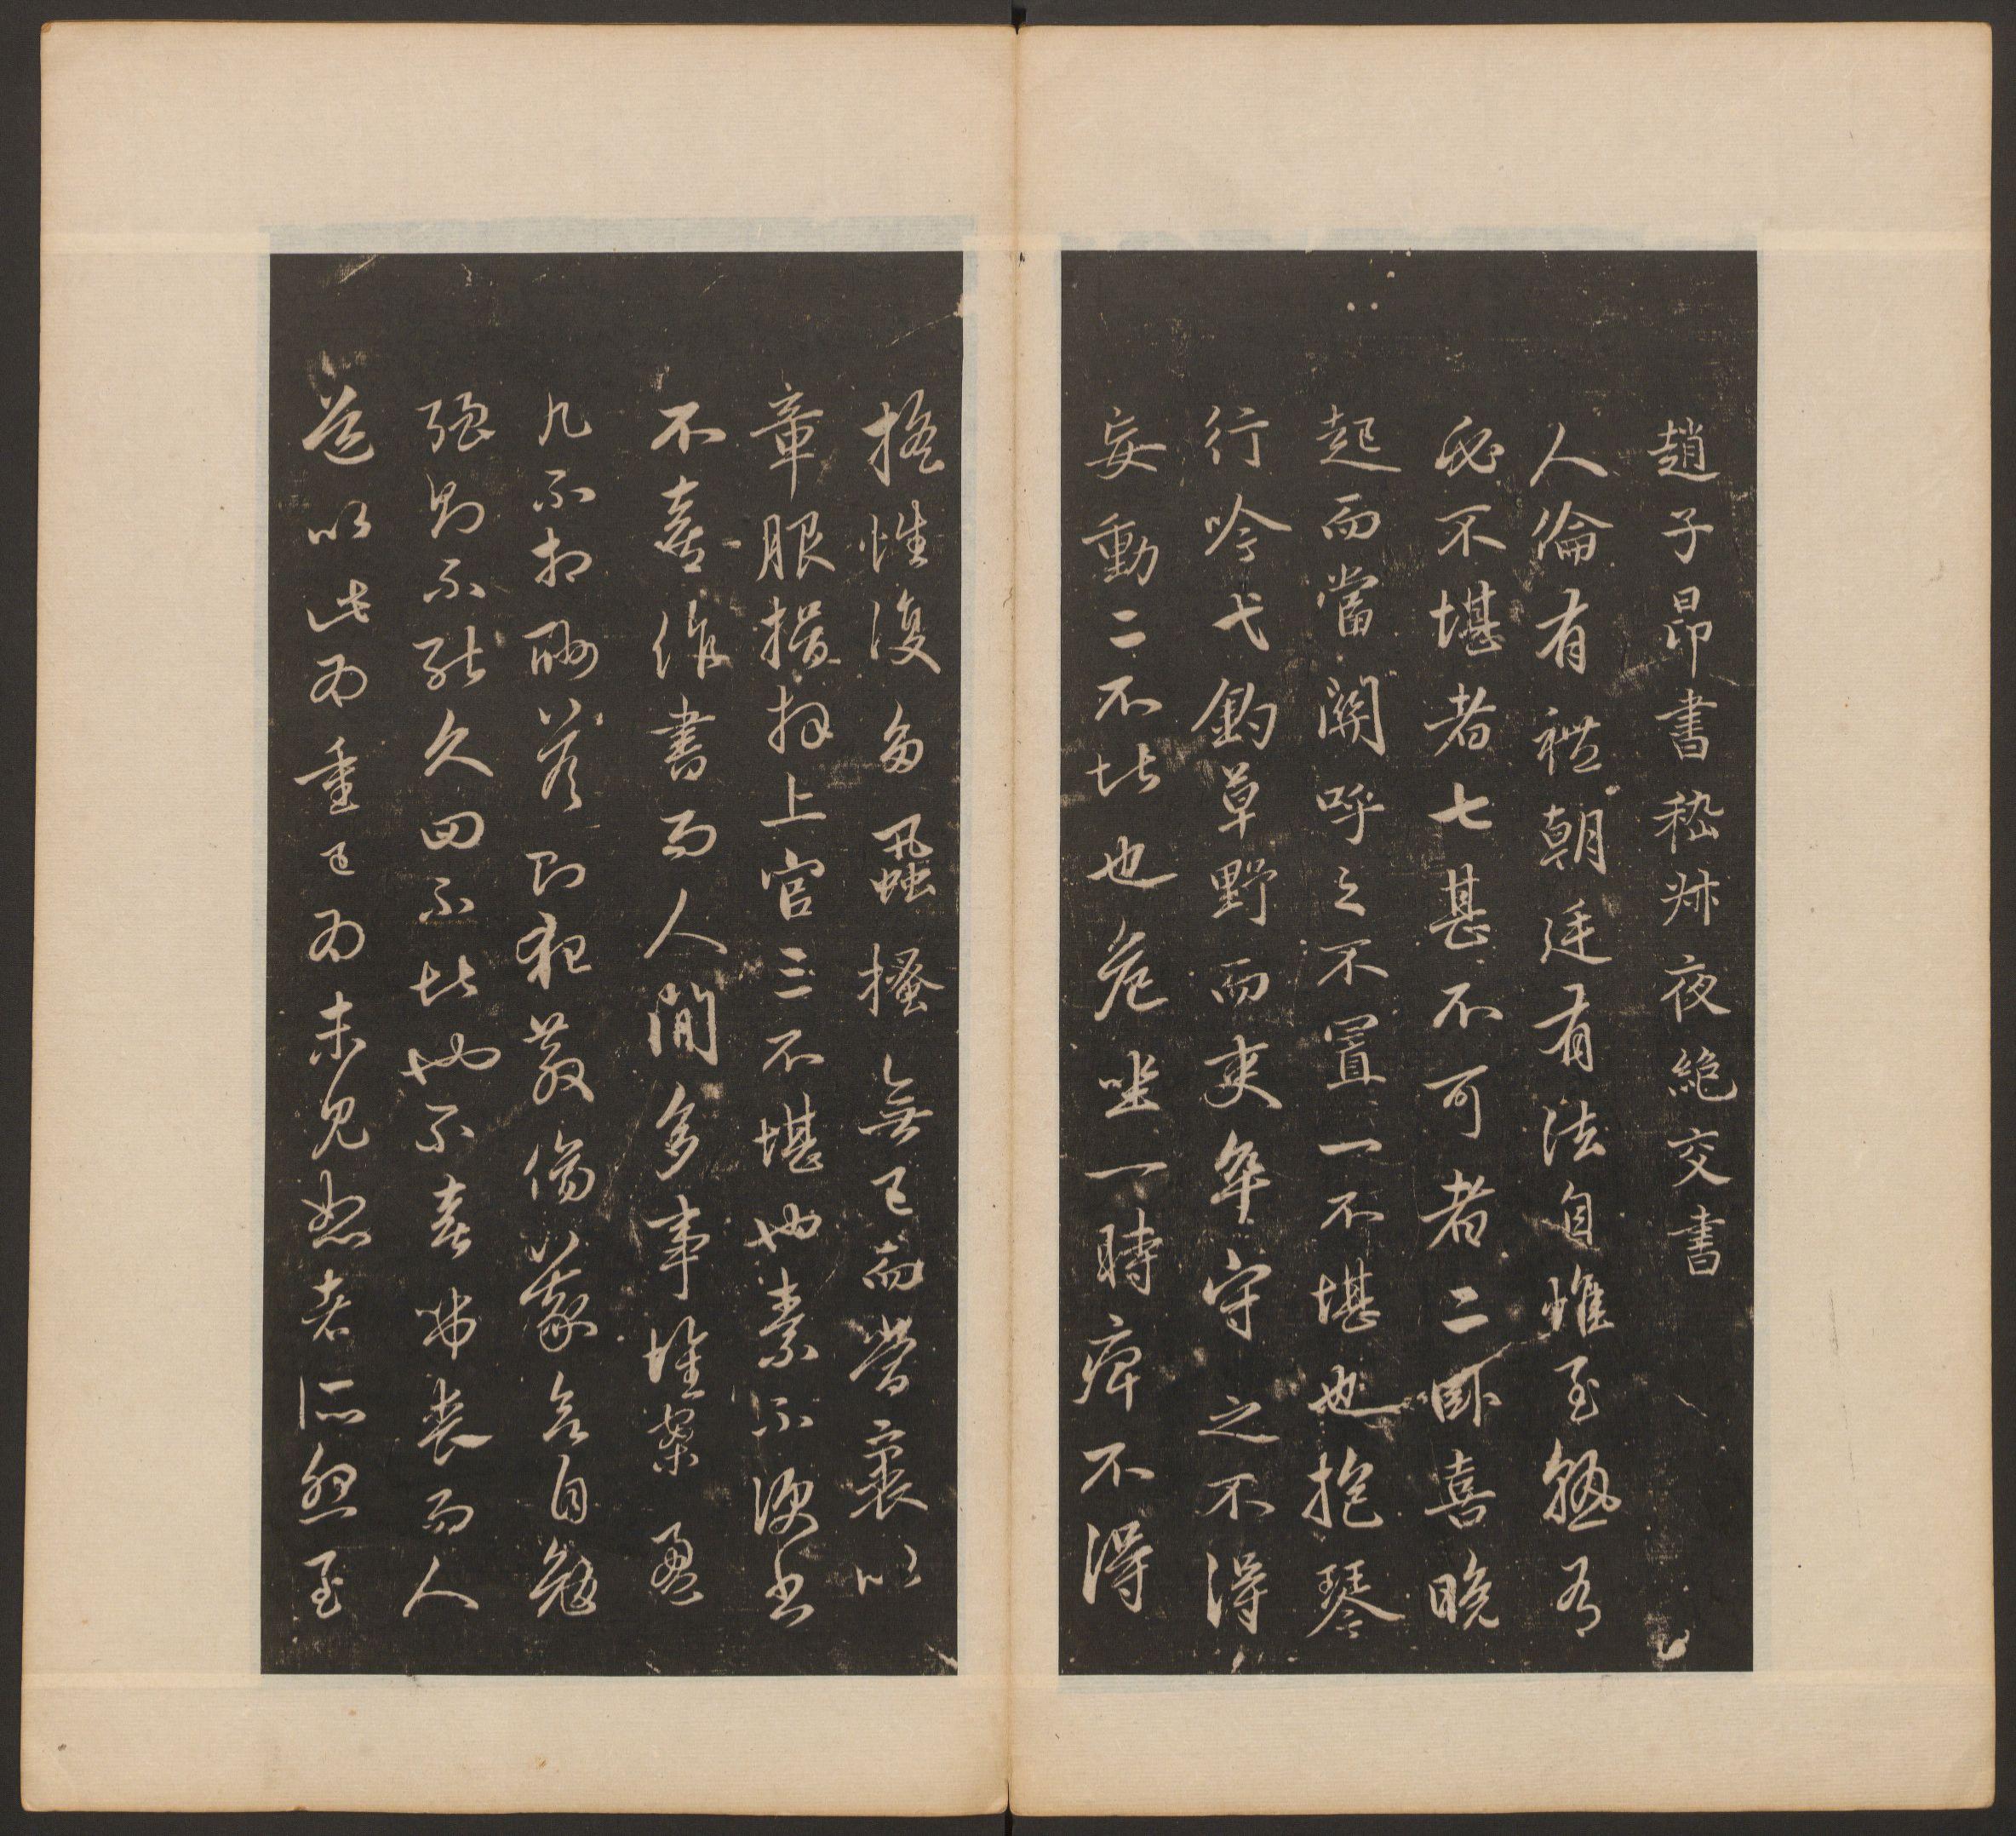 趙子昂書嵇叔夜絕交書
人倫有禮朝廷有法自惟至熟有
必不堪者七甚不可者二卧喜晚
起而當關呼之不置一不堪也抱琴
行吟弋釣草野而吏卒守之不得
妄動二不堪也危坐一時痺不得
搖性復多蝨搔無已而當裹以
章服揖拜上官三不堪也素不便書
不喜作書而人間多事堆案盈
几不相酬答則犯教傷義欲自勉
強則不能久四不堪也不喜吊喪而人
道以此為重己為未見恕者所怨至